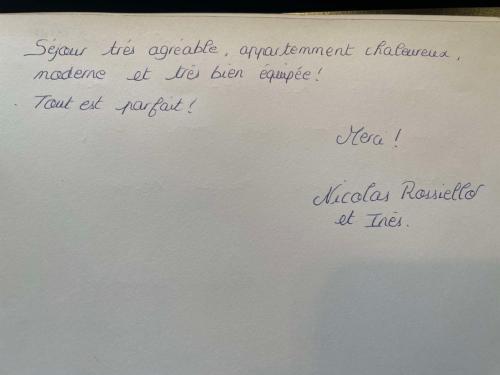 Séjour trés agréable, appartemment chaleureux,
moderne et trés bien équipée!
Tout est parfait!
Merci!
Nicolas Rossiello
et Inés.